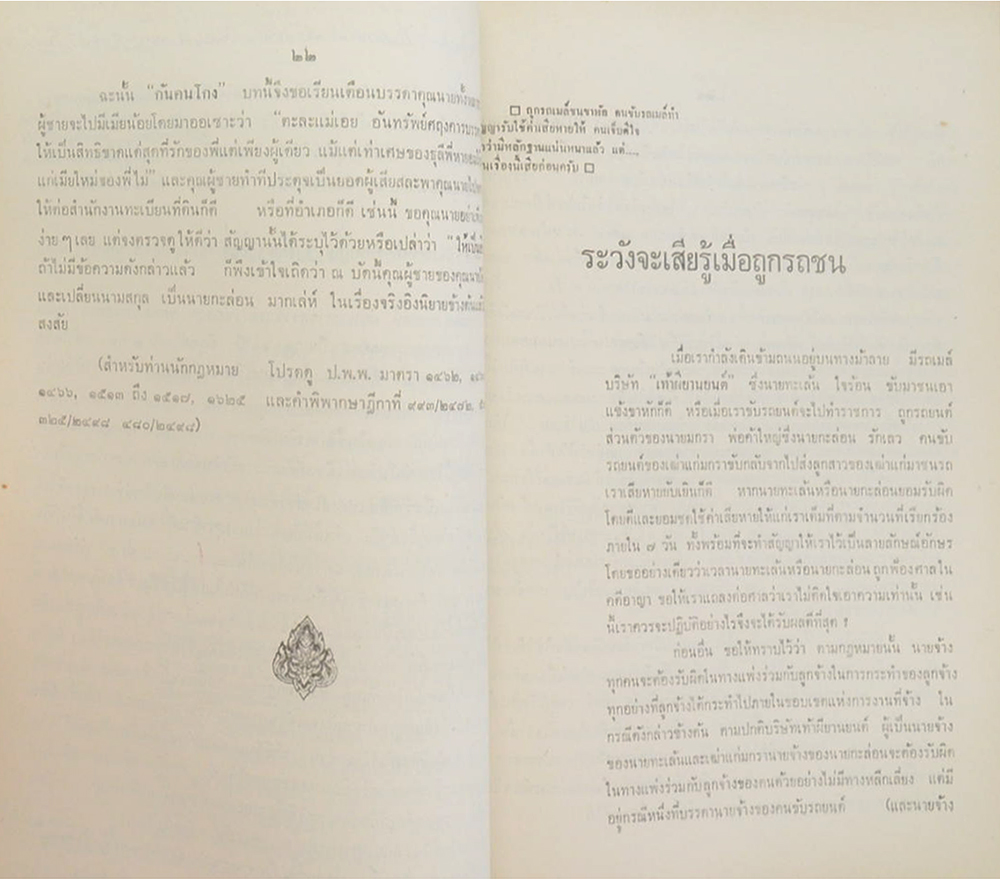 ๒๒
ฉะนั้น “กันคนโกง” บทนี้จึงขอเรียนเตือนบรรดาคุณนายทั้ง
ผู้ชายจะไปมีเมียน้อยโดยมาออเซาะว่า “ตะละแม่เอย อันทรัพย์ศฤงคาร
ให้เป็นสิทธิขาดแด่สุดที่รักของพี่แต่เพียงผู้เดียว แม้แต่เท่าเศษของธุลีพี่
แก่เมียใหม่ของพี่ไม่” และคุณผู้ชายทำทีประดุจเป็นยอดผู้เสียสละพาคุณนายไป
ให้ต่อสำนักงานทะเบียนที่ดินก็ดี หรือที่อำเภอก็ดี เช่นนี้ ขอคุณนายอย่า
ง่ายๆ เลย แต่จงตรวจดูให้ดีว่า สัญญานั้นได้ระบุไว้ด้วยหรือเปล่าว่า “ให้เป็น
ถ้าไม่มีข้อความดังกล่าวแล้ว ก็พึงเข้าใจเถิดว่า ณ บัดนี้คุณผู้ชายของคุณนาย
และเปลี่ยนนามสกุล เป็นนายกะล่อน มากเล่ห์ ในเรื่องจริงอิงนิยายข้างต้น
สงสัย
(สำหรับท่านนักกฎหมาย โปรดดู ป.พ.พ. มาตรา ๑๔๖๒,
๑๔๖๖, ๑๕๑๓ ถึง ๑๕๑๗, ๑๖๒๕ และคำพิพากษาฎีกาที่ ๙๙๓/๒๔๘๒,
๓๒๕/๒๔๙๘ ๔๘๐/๒๔๙๘)
□ ถูกรถเมล์ชนขาหัก คนขับรถเมล์ทำ
ญญารับใช้ค่าเสียหายให้ คนเจ็บดีใจ
ว่ามีหลักฐานแน่นหนาแล้ว แต่....
นเรื่องนี้เสียก่อนครับ □
ระวังจะเสียรู้เมื่อถูกรถชน
เมื่อเรากำลังเดินข้ามถนนอยู่บนทางม้าลาย มีรถเมล์
บริษัท “เท้าผียานยนต์” ซึ่งนายทะเล้น ใจร้อน ขับมาชนเอา
แข้งขาหักก็ดี หรือเมื่อเราขับรถยนต์จะไปทำราชการ ถูกรถยนต์
ส่วนตัวของนายมกรา พ่อค้าใหญ่ซึ่งนายกะล่อน รักเลว คนขับ
รถยนต์ของเฒ่าแก่มกราขับกลับจากไปส่งลูกสาวของเฒ่าแก่มาชนรถ
เราเสียหายยับเยินก็ดี หากนายทะเล้นหรือนายกะล่อนยอมรับผิด
โดยดีและยอมชดใช้ค่าเสียหายให้แก่เราเต็มที่ตามจำนวนที่เรียกร้อง
ภายใน ๗ วัน ทั้งพร้อมที่จะทำสัญญาให้เราไว้เป็นลายลักษณ์อักษร
โดยขออย่างเดียวว่าเวลานายทะเล้นหรือนายกะล่อน ถูกฟ้องศาลใน
คดีอาญา ขอให้เราแถลงต่อศาลว่าเราไม่ติดใจเอาความเท่านั้น เช่น
นี้เราควรจะปฏิบัติอย่างไรจึงจะได้รับผลดีที่สุด ?
ก่อนอื่น ขอให้ทราบไว้ว่า ตามกฎหมายนั้น นายจ้าง
ทุกคนจะต้องรับผิดในทางแพ่งร่วมกับลูกจ้างในการกระทำของลูกจ้าง
ทุกอย่างที่ลูกจ้างได้กระทำไปภายในขอบเขตแห่งการงานที่จ้าง ใน
กรณีดังกล่าวข้างต้น ตามปกติบริษัทเท้าผียานยนต์ ผู้เป็นนายจ้าง
ของนายทะเล้นและเฒ่าแก่มกรานายจ้างของนายกะล่อนจะต้องรับผิด
ในทางแพ่งร่วมกับลูกจ้างของตนด้วยอย่างไม่มีทางหลีกเลี่ยง แต่มี
อยู่กรณีหนึ่งที่บรรดานายจ้างของคนขับรถยนต์ (และนายจ้าง